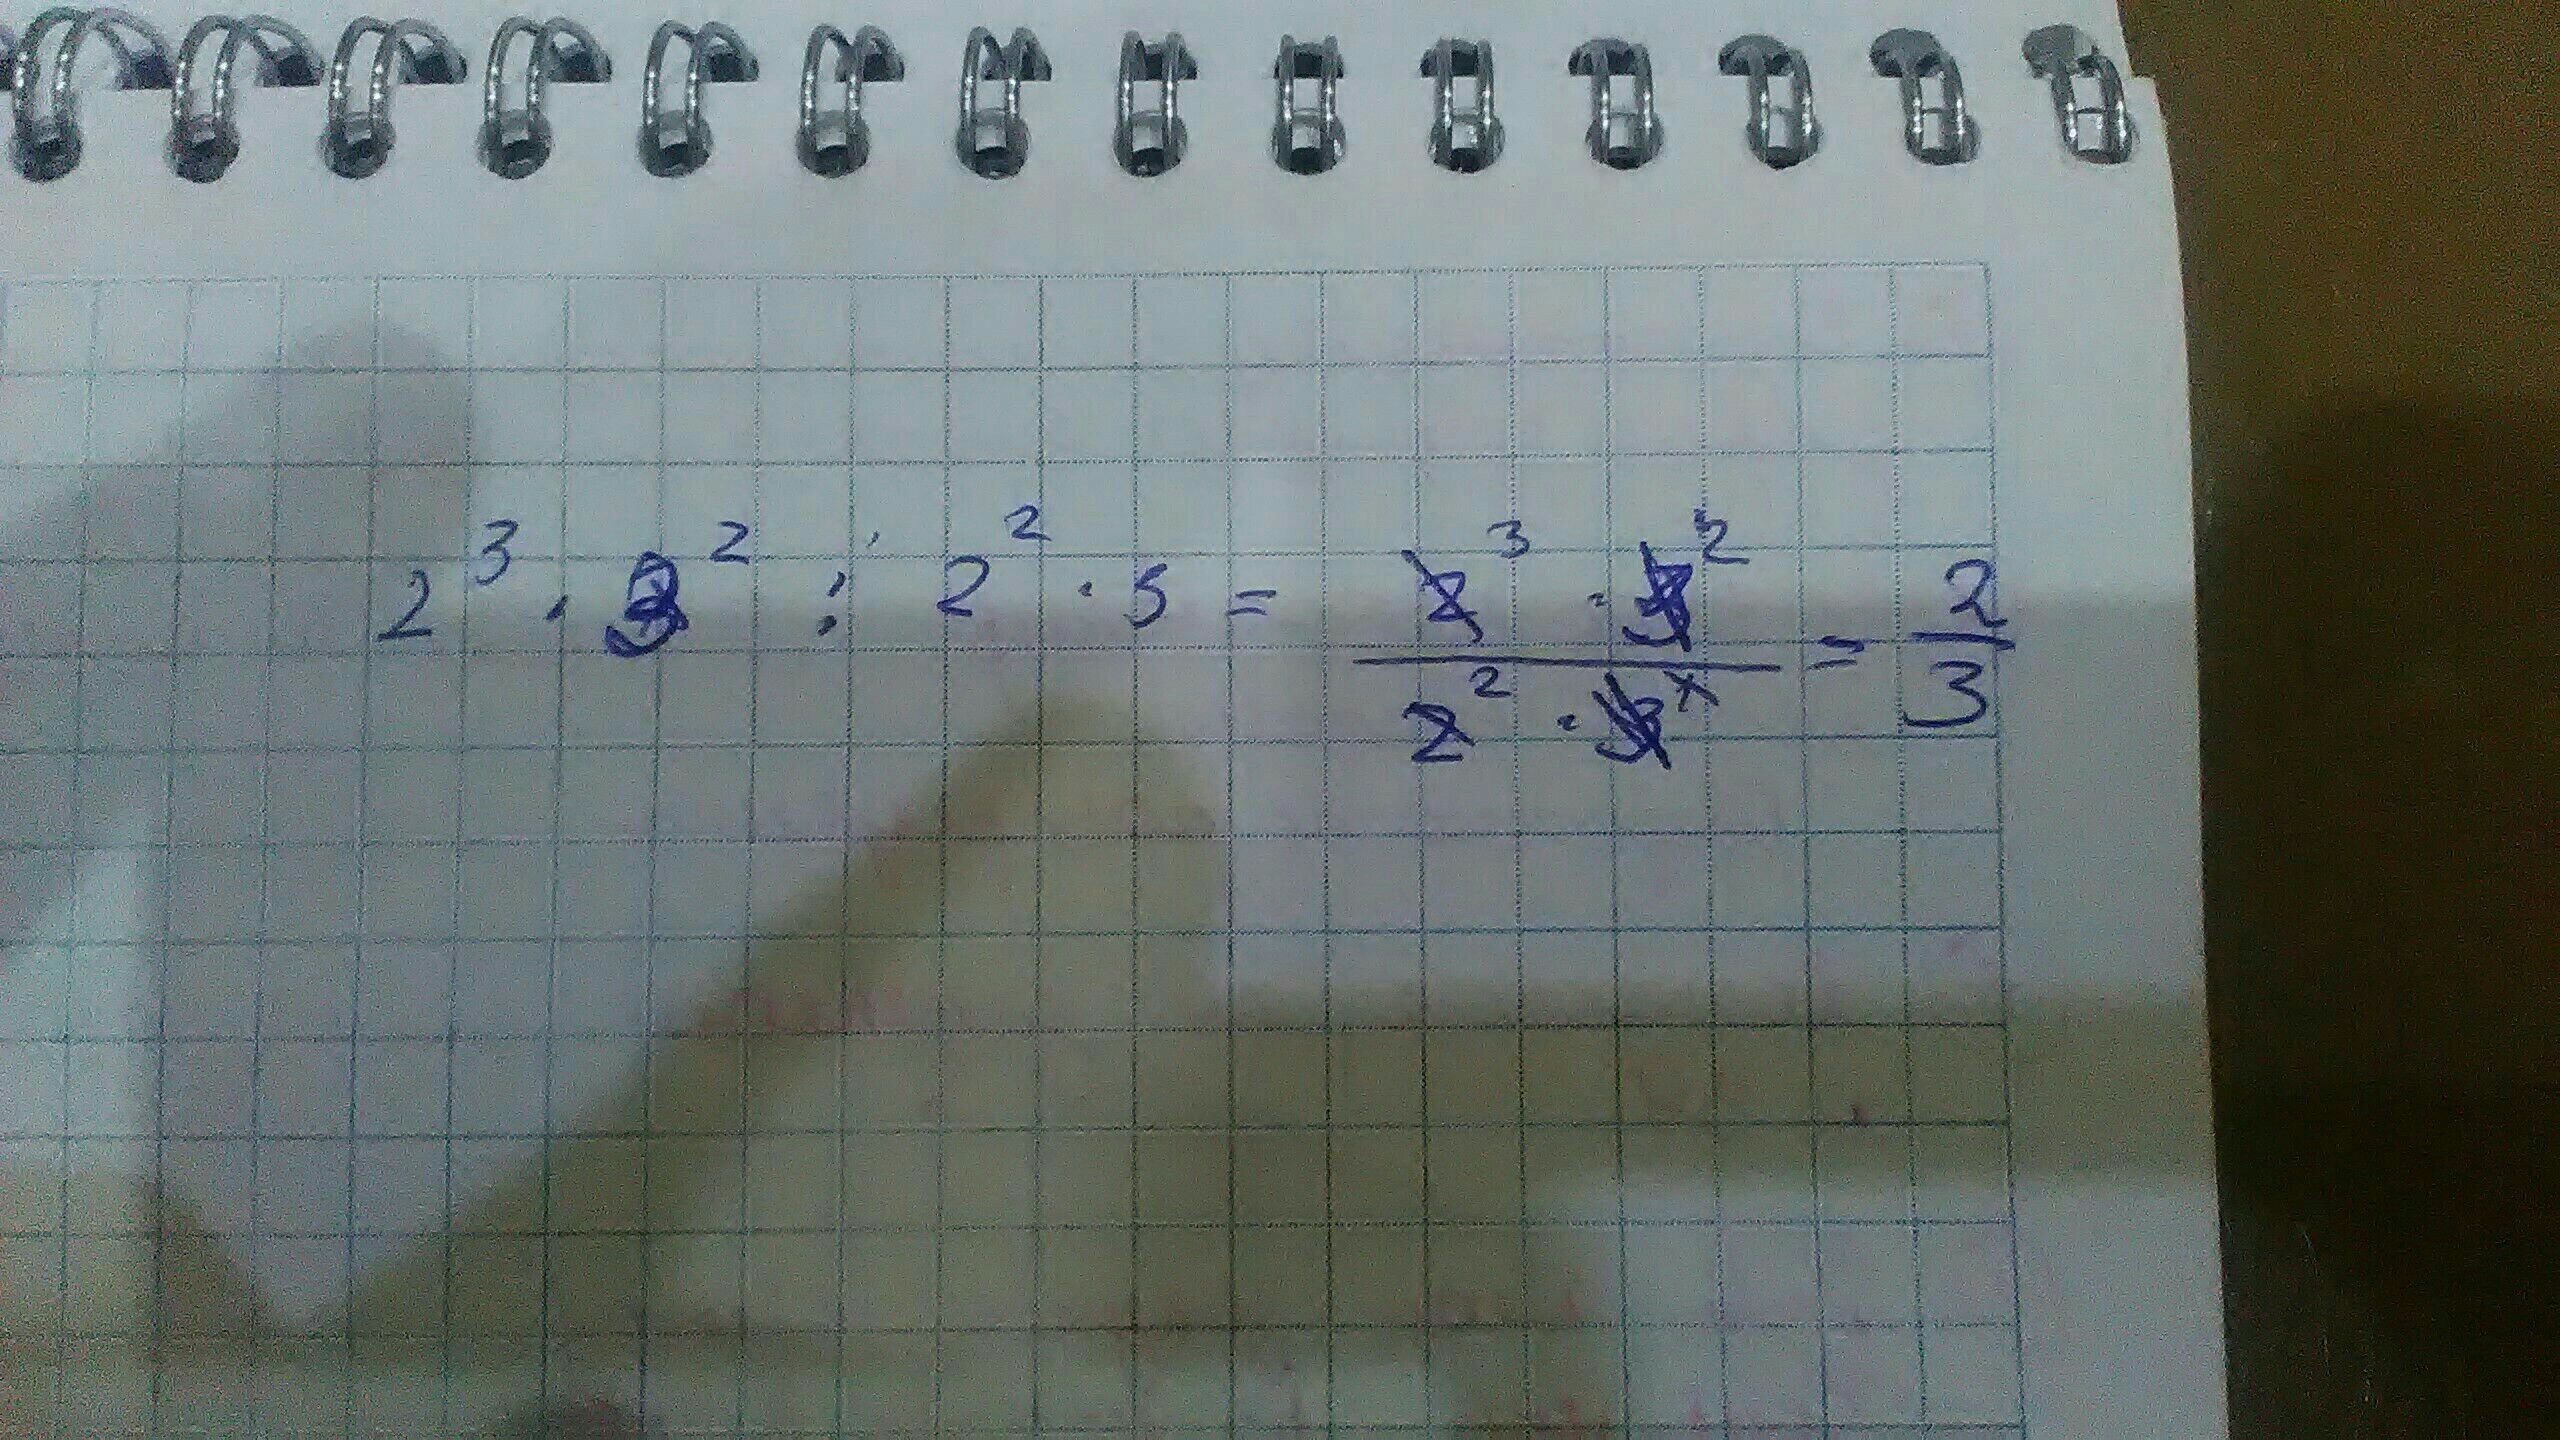 2³ · 3² : 2² · 5 = 2³ · 3² / 2² · 3ˣ = 2/3